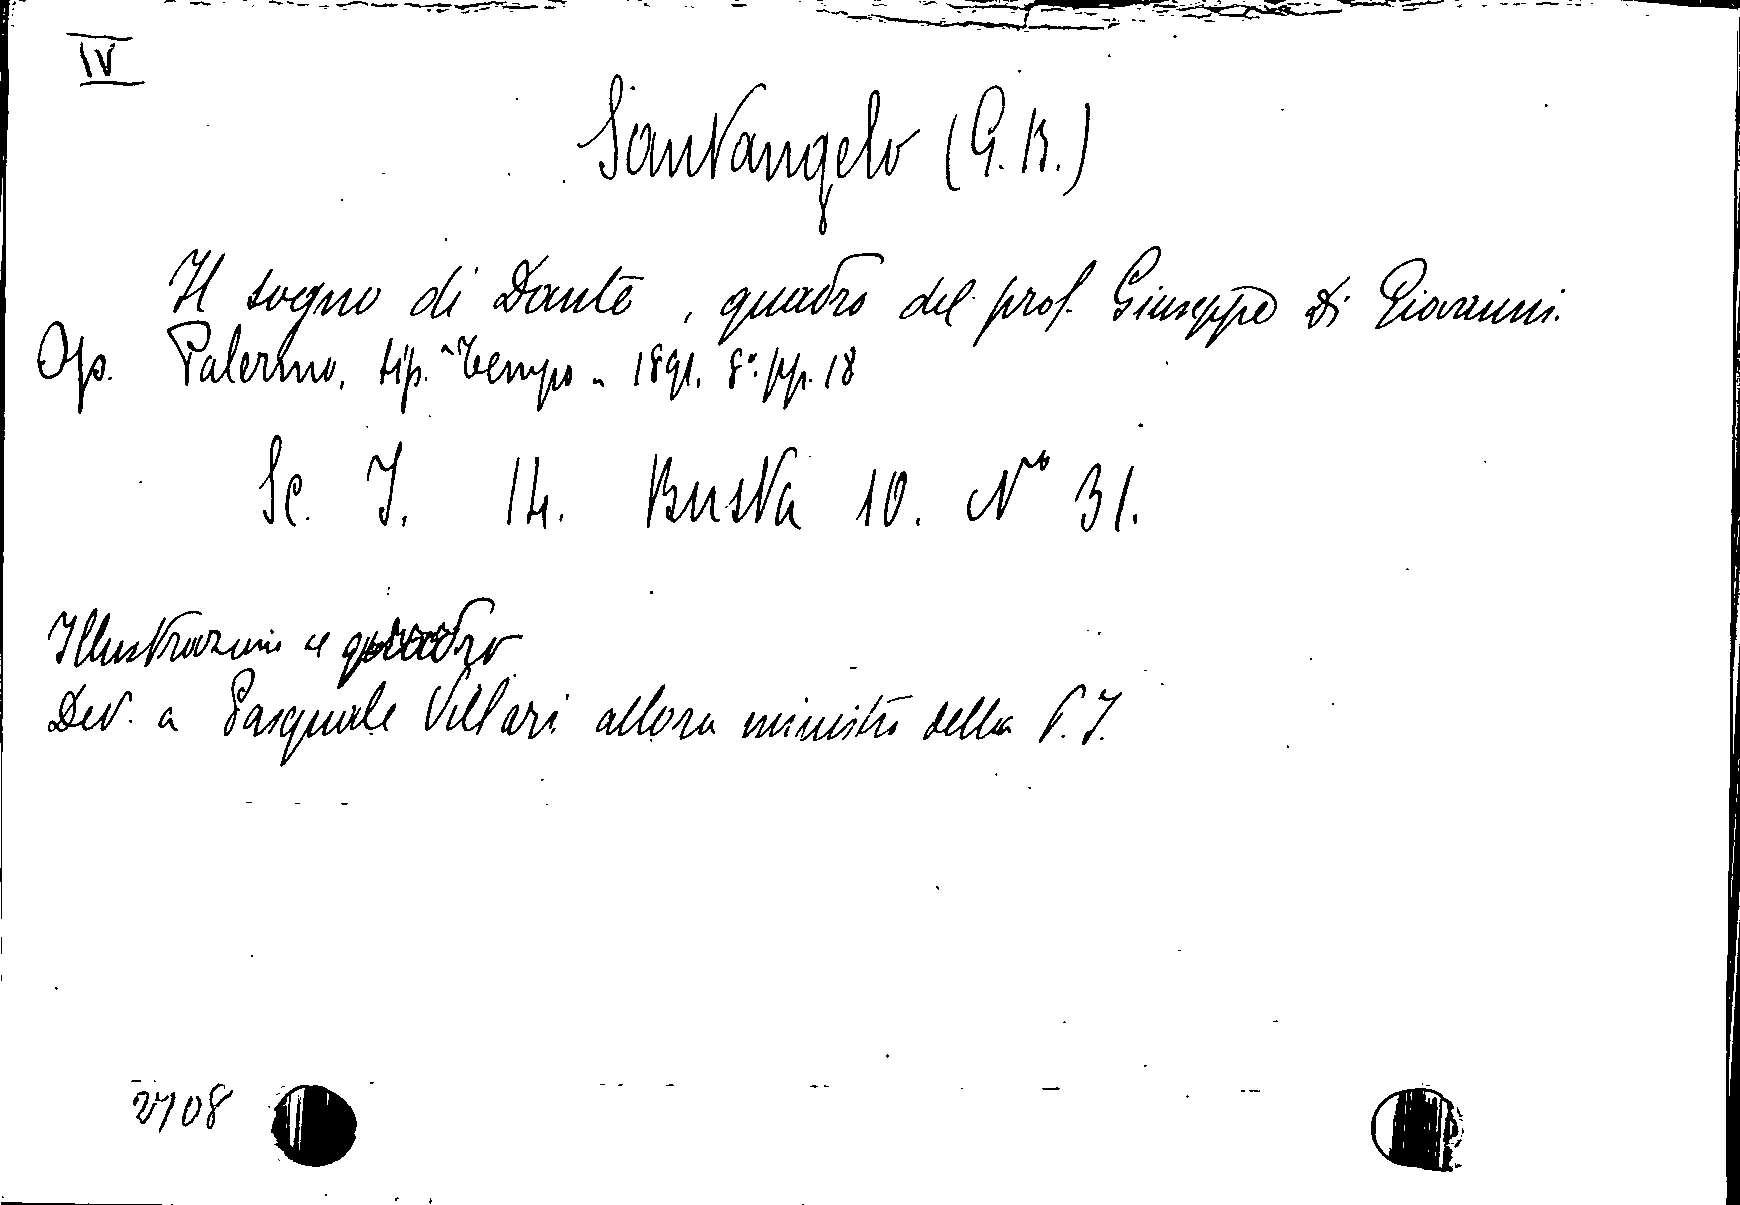 IV
Santangelo (G. B.)
Il sogno di Dante, quadro del prof. Giuseppe Di Giovanni.
Op. Palermo, tip. "Tempo" 1891. 8° pp. 18
Sc. I. 14. Busta 10. N° 31.
quadro
Ded. a Pasquale Villari allora ministro della P. I.
2708